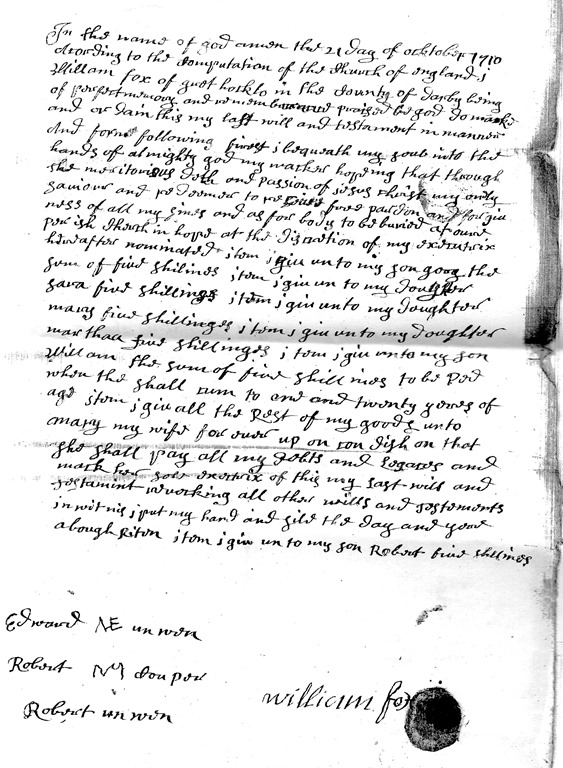 In the name of god amen the 21 day of ocktober 1710
Acording to the Computation of the Church of england j
William fox of gret hocklo in the County of darby being
of perfect memory and remembe praised be god do make
and or dain this my last will and testament in manner
And forme following first j bequeath my soul into the
hands of almighty god my macker hoping that through
the meritorious deth and passion of jesus Christ my only
saviour and redeemer to free pardon and forgiu
ness of all my sines and as for body to be buried at oure
perish Church in hoppe at the discretion of my exectrix
hereafter nominated item j giu unto my son gorg the
som of five shilines item j giu un to my doughter
sara five shillings item j giu unto my doughter
mary five shillinges item j giu unto my doughter
marthaa five shillinges j tom j giu unto my son
William the sum of five shillines to be ped
when the shall cum to one and twenty yeres of
age jtem j giv all the Rest of my goods unto
mary my wife for ever up on con dish on that
she shall pay all my debts and legases and
mack her sole exectrix of this my last will and
testamint revocking all other wills and testements
in wit nis j put my hand and sild the day and yere
abough riten jtem j giu un to my son Robert five shillines
Edward NE un wen
Robert Couper
Robert un wen
william fox